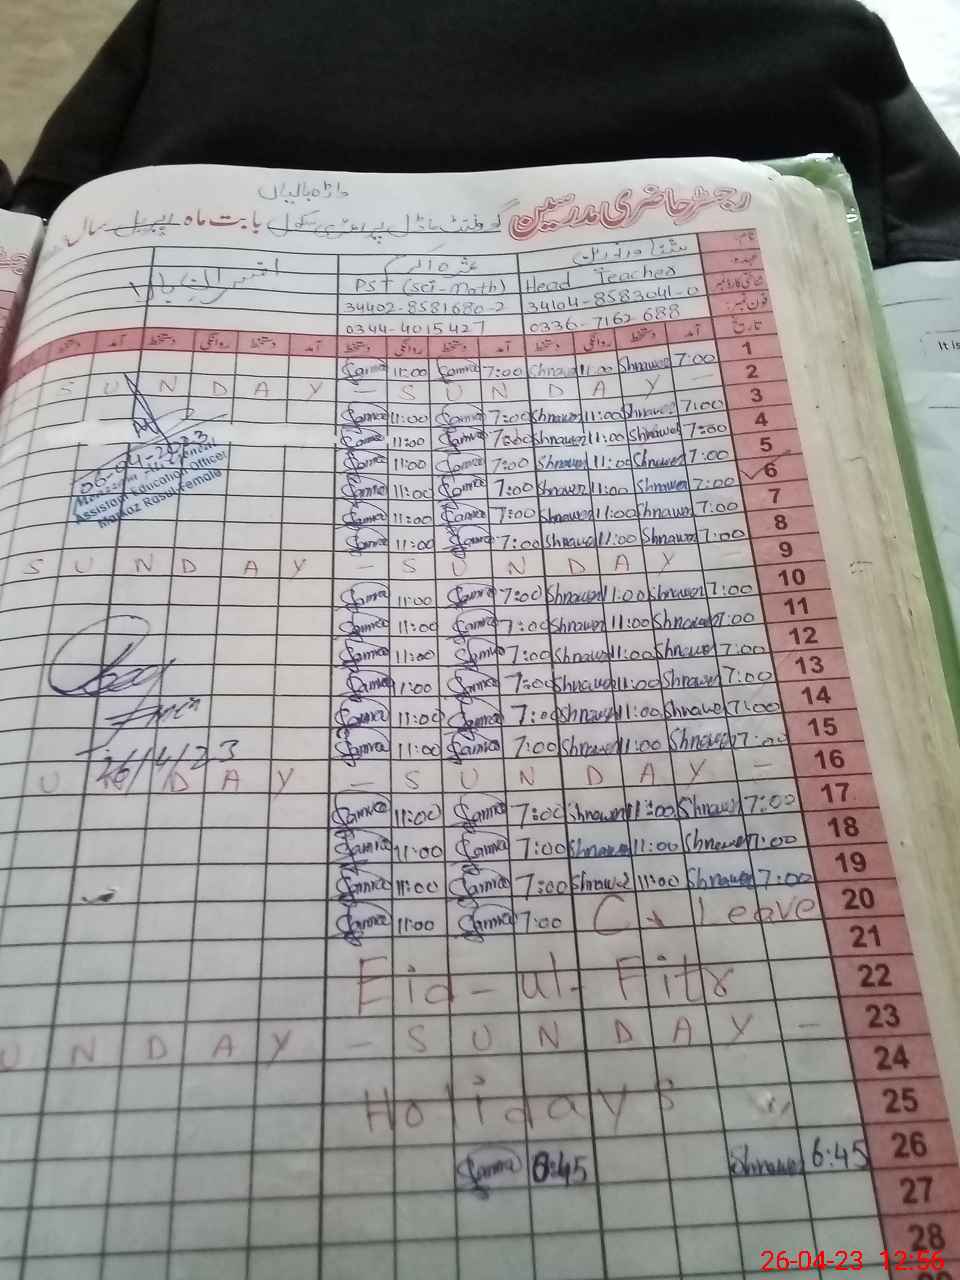 داڑہ بالیاں
رجسٹر حاضری مدرسین گورنمنٹ ماڈل پرائمری سکول بابت ماہ اپریل سال
نام
عہدہ
PST (Sci-Math) Head Teacher
34402-8581680-2 34104-8583041-0 شناختی کارڈ نمبر
0344-4015427 0336-7162-688 فون نمبر
دستخط آمد دستخط روانگی دستخط آمد دستخط روانگی دستخط آمد دستخط روانگی دستخط آمد تاریخ
Samra 11:00 Samra 7:00 Shnawer 11:00 Shnawer 7:00 1
S U N D A Y — S U N D A Y — 2
Samra 11:00 Samra 7:00 Shnawer 11:00 Shnawer 7:00 3
Samra 11:00 Samra 7:00 Shnawer 11:00 Shnawer 7:00 4
Samra 11:00 Samra 7:00 Shnawer 11:00 Shnawer 7:00 5
Samra 11:00 Samra 7:00 Shnawer 11:00 Shnawer 7:00 6
Samra 11:00 Samra 7:00 Shnawer 11:00 Shnawer 7:00 7
Samra 11:00 Samra 7:00 Shnawer 11:00 Shnawer 7:00 8
06-04-2023
Assistant Education Officer
Markaz Rasul Female
S U N D A Y — S U N D A Y — 9
Samra 11:00 Samra 7:00 Shnawer 11:00 Shnawer 7:00 10
Samra 11:00 Samra 7:00 Shnawer 11:00 Shnawer 7:00 11
Samra 11:00 Samra 7:00 Shnawer 11:00 Shnawer 7:00 12
Samra 11:00 Samra 7:00 Shnawer 11:00 Shnawer 7:00 13
Samra 11:00 Samra 7:00 Shnawer 11:00 Shnawer 7:00 14
Samra 11:00 Samra 7:00 Shnawer 11:00 Shnawer 7:00 15
26/4/23
U N D A Y — S U N D A Y — 16
Samra 11:00 Samra 7:00 Shnawer 11:00 Shnawer 7:00 17
Samra 11:00 Samra 7:00 Shnawer 11:00 Shnawer 7:00 18
Samra 11:00 Samra 7:00 Shnawer 11:00 Shnawer 7:00 19
Samra 11:00 Samra 7:00 C. Leave 20
21
Eid-ul-Fitr 22
U N D A Y — S U N D A Y — 23
24
Holidays 25
Samra 6:45 Shnawer 6:45 26
27
28
It is
26-04-23 12:56